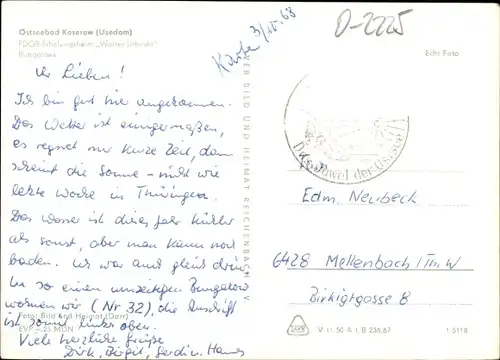 Ostseebad Koserow (Usedom)
FDGB-Erholungsheim „Walter Ulbricht“
Bungalows
Karte 3/10. 68
D-2225
Echt Foto
Ihr Lieben!
Ich bin gut hier angekommen.
Das Wetter ist einigermaßen,
es regnet nur kurze Zeit, dann
scheint die Sonne – nicht wie
letzte Woche in Thüringen.
Das Wasser ist dieses Jahr kühler
als sonst, aber man kann noch
baden. Wir war auch gleich drin
In so einen umseitigen Bungalow
wohnen wir (Nr 32), die Anschrift
ist sonst links oben.
Viele herzliche Grüße
Dirk, Birgit, Hans
VEB BILD UND HEIMAT REICHENBACH I. V.
Das Juwel der Ostsee
Edm. Neubeck
6428 Mellenbach/Thür. W
Birkigtgasse 8
Foto: Bild und Heimat (Darr)
EVP -,25 MDN
V 11 50 A 1 B 235/67
1 5118